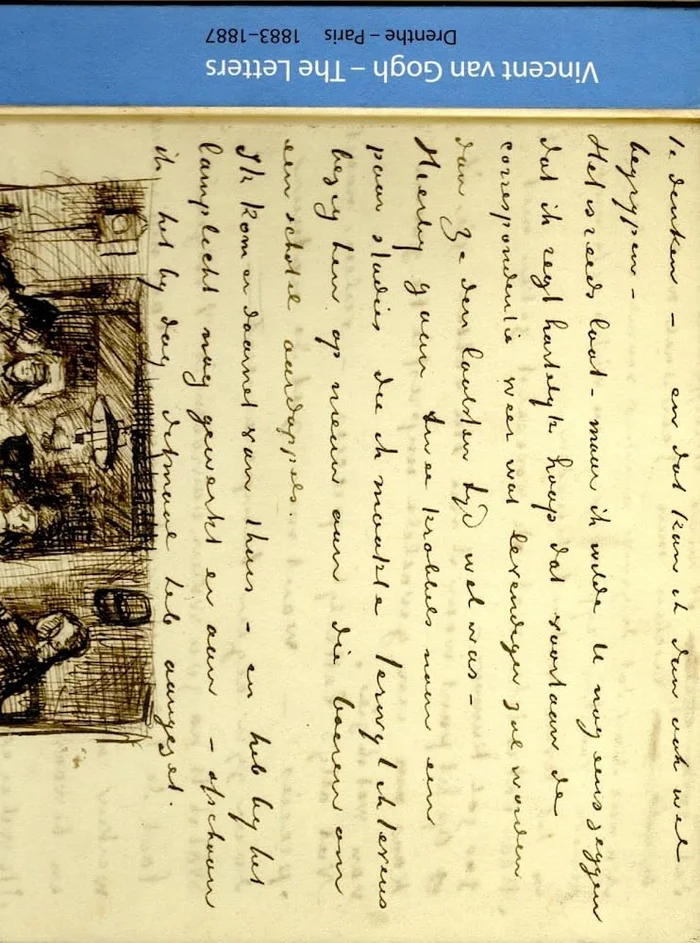 Vincent van Gogh – The Letters
Drenthe – Paris 1883–1887
te denken – en dat kan ik dan ook wel
begrijpen –
Het is reeds laat – maar ik wilde U nog eens zeggen
dat ik regt hartelijk hoop dat voortaan de
correspondentie weer wat levendiger zal worden
dan ze den laatsten tijd wel was –
Hierbij gaan twee krabbels naar een
paar studies die ik maakte terwijl ik tevens
bezig ben op nieuw aan die boeren om
een schotel aardappels.
Ik kom er daarnet van thuis – en heb bij het
lamplicht nog gewerkt er aan – ofschoon
ik het bij dag ditmaal heb aangezet.